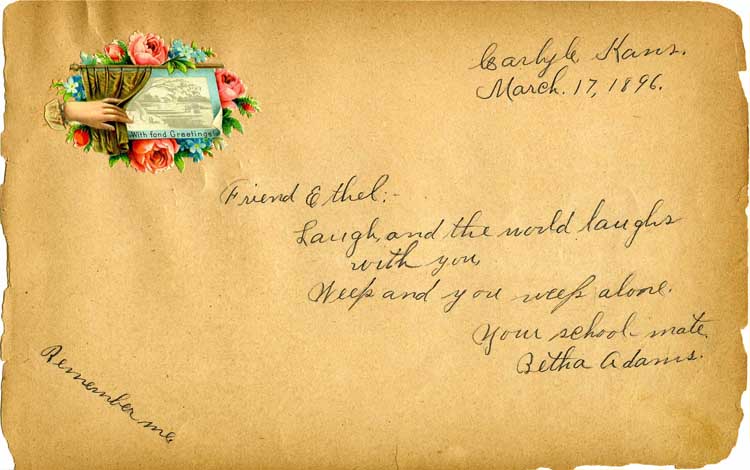 With fond Greetings
Carlyle Kans.
March. 17, 1896.
Friend Ethel:-
Laugh, and the world laughs
with you,
Weep and you weep alone.
Your school-mate,
Betha Adams.
Remember me,